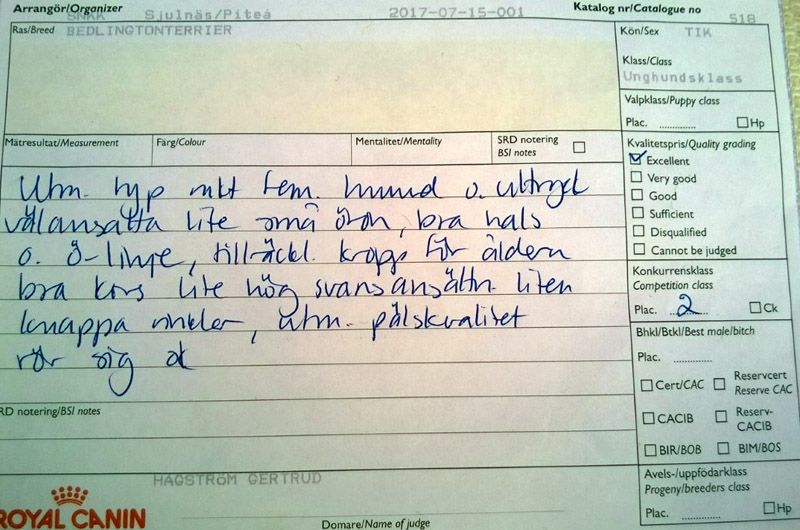 Arrangör/Organizer
SNKK Sjulnäs/Piteå
2017-07-15-001
Katalog nr/Catalogue no
518
Ras/Breed BEDLINGTONTERRIER
Kön/Sex TIK
Klass/Class
Unghundsklass
Valpklass/Puppy class
Plac. .............. Hp
Mätresultat/Measurement
Färg/Colour
Mentalitet/Mentality
SRD notering
BSI notes
Kvalitetspris/Quality grading
Excellent
Very good
Good
Sufficient
Disqualified
Cannot be judged
Utm. typ mkt fem. huvud o. uttryck
välansatta lite små öron, bra hals
o. ö-linje, tillräckl. kropp för åldern
bra kors lite hög svansansättn. liten
knappa vinkler, utm. pälskvalitet
rör sig ok
Konkurrensklass
Competition class
Plac. 2 Ck
Bhkl/Btkl/Best male/bitch
Plac. ..............
Cert/CAC
Reservcert
Reserve CAC
CACIB
Reserv-
CACIB
BIR/BOB
BIM/BOS
SRD notering/BSI notes
Avels-/uppfödarklass
Progeny/breeders class
Plac. .............. Hp
HAGSTRÖM GERTRUD
ROYAL CANIN
Domare/Name of judge